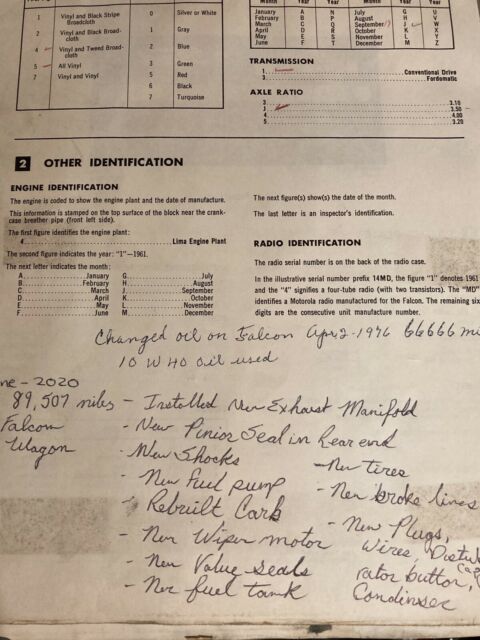 Month Year Year Month Year Year
1 Vinyl and Black Stripe Broadcloth
2 Vinyl and Black Broadcloth
4 Vinyl and Tweed Broadcloth
5 All Vinyl
7 Vinyl and Vinyl
0 Silver or White
1 Gray
2 Blue
3 Green
5 Red
6 Black
7 Turquoise
January A N July G U
February B P August H V
March C Q September J W
April D R October K X
May E S November L Y
June F T December M Z
TRANSMISSION
1 Conventional Drive
3 Fordomatic
AXLE RATIO
3.10
3.50
4 4.00
5 3.20
2 OTHER IDENTIFICATION
ENGINE IDENTIFICATION
The engine is coded to show the engine plant and the date of manufacture.
This information is stamped on the top surface of the block near the crank-
case breather pipe (front left side).
The first figure identifies the engine plant:
4 Lima Engine Plant
The second figure indicates the year: "1"—1961.
The next letter indicates the month:
A January G July
B February H August
C March J September
D April K October
E May L November
F June M December
The next figure(s) show(s) the date of the month.
The last letter is an inspector's identification.
RADIO IDENTIFICATION
The radio serial number is on the back of the radio case.
In the illustrative serial number prefix 14MD, the figure "1" denotes 1961
and the "4" signifies a four-tube radio (with two transistors). The "MD"
identifies a Motorola radio manufactured for the Falcon. The remaining six
digits are the consecutive unit manufacture number.
Changed oil on Falcon Apr 2-1976 66666 mi
10 W 40 oil used
ne - 2020
89,507 miles - Installed New Exhaust Manifold
Falcon Wagon
- New Pinior Seal in Rear end
- New Shocks
- New Fuel pump
- Rebuilt Carb
- New Wiper motor
- New Valve seals
- New fuel tank
- New tires
- New broke lines
- New Plugs,
Wires, Distu
rator button, Ca
Condinser